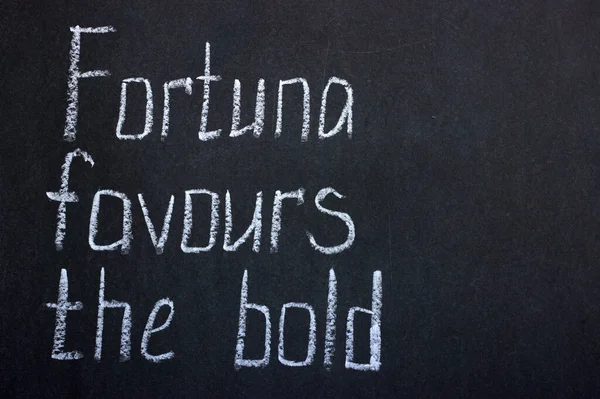 Fortuna
favours
the bold